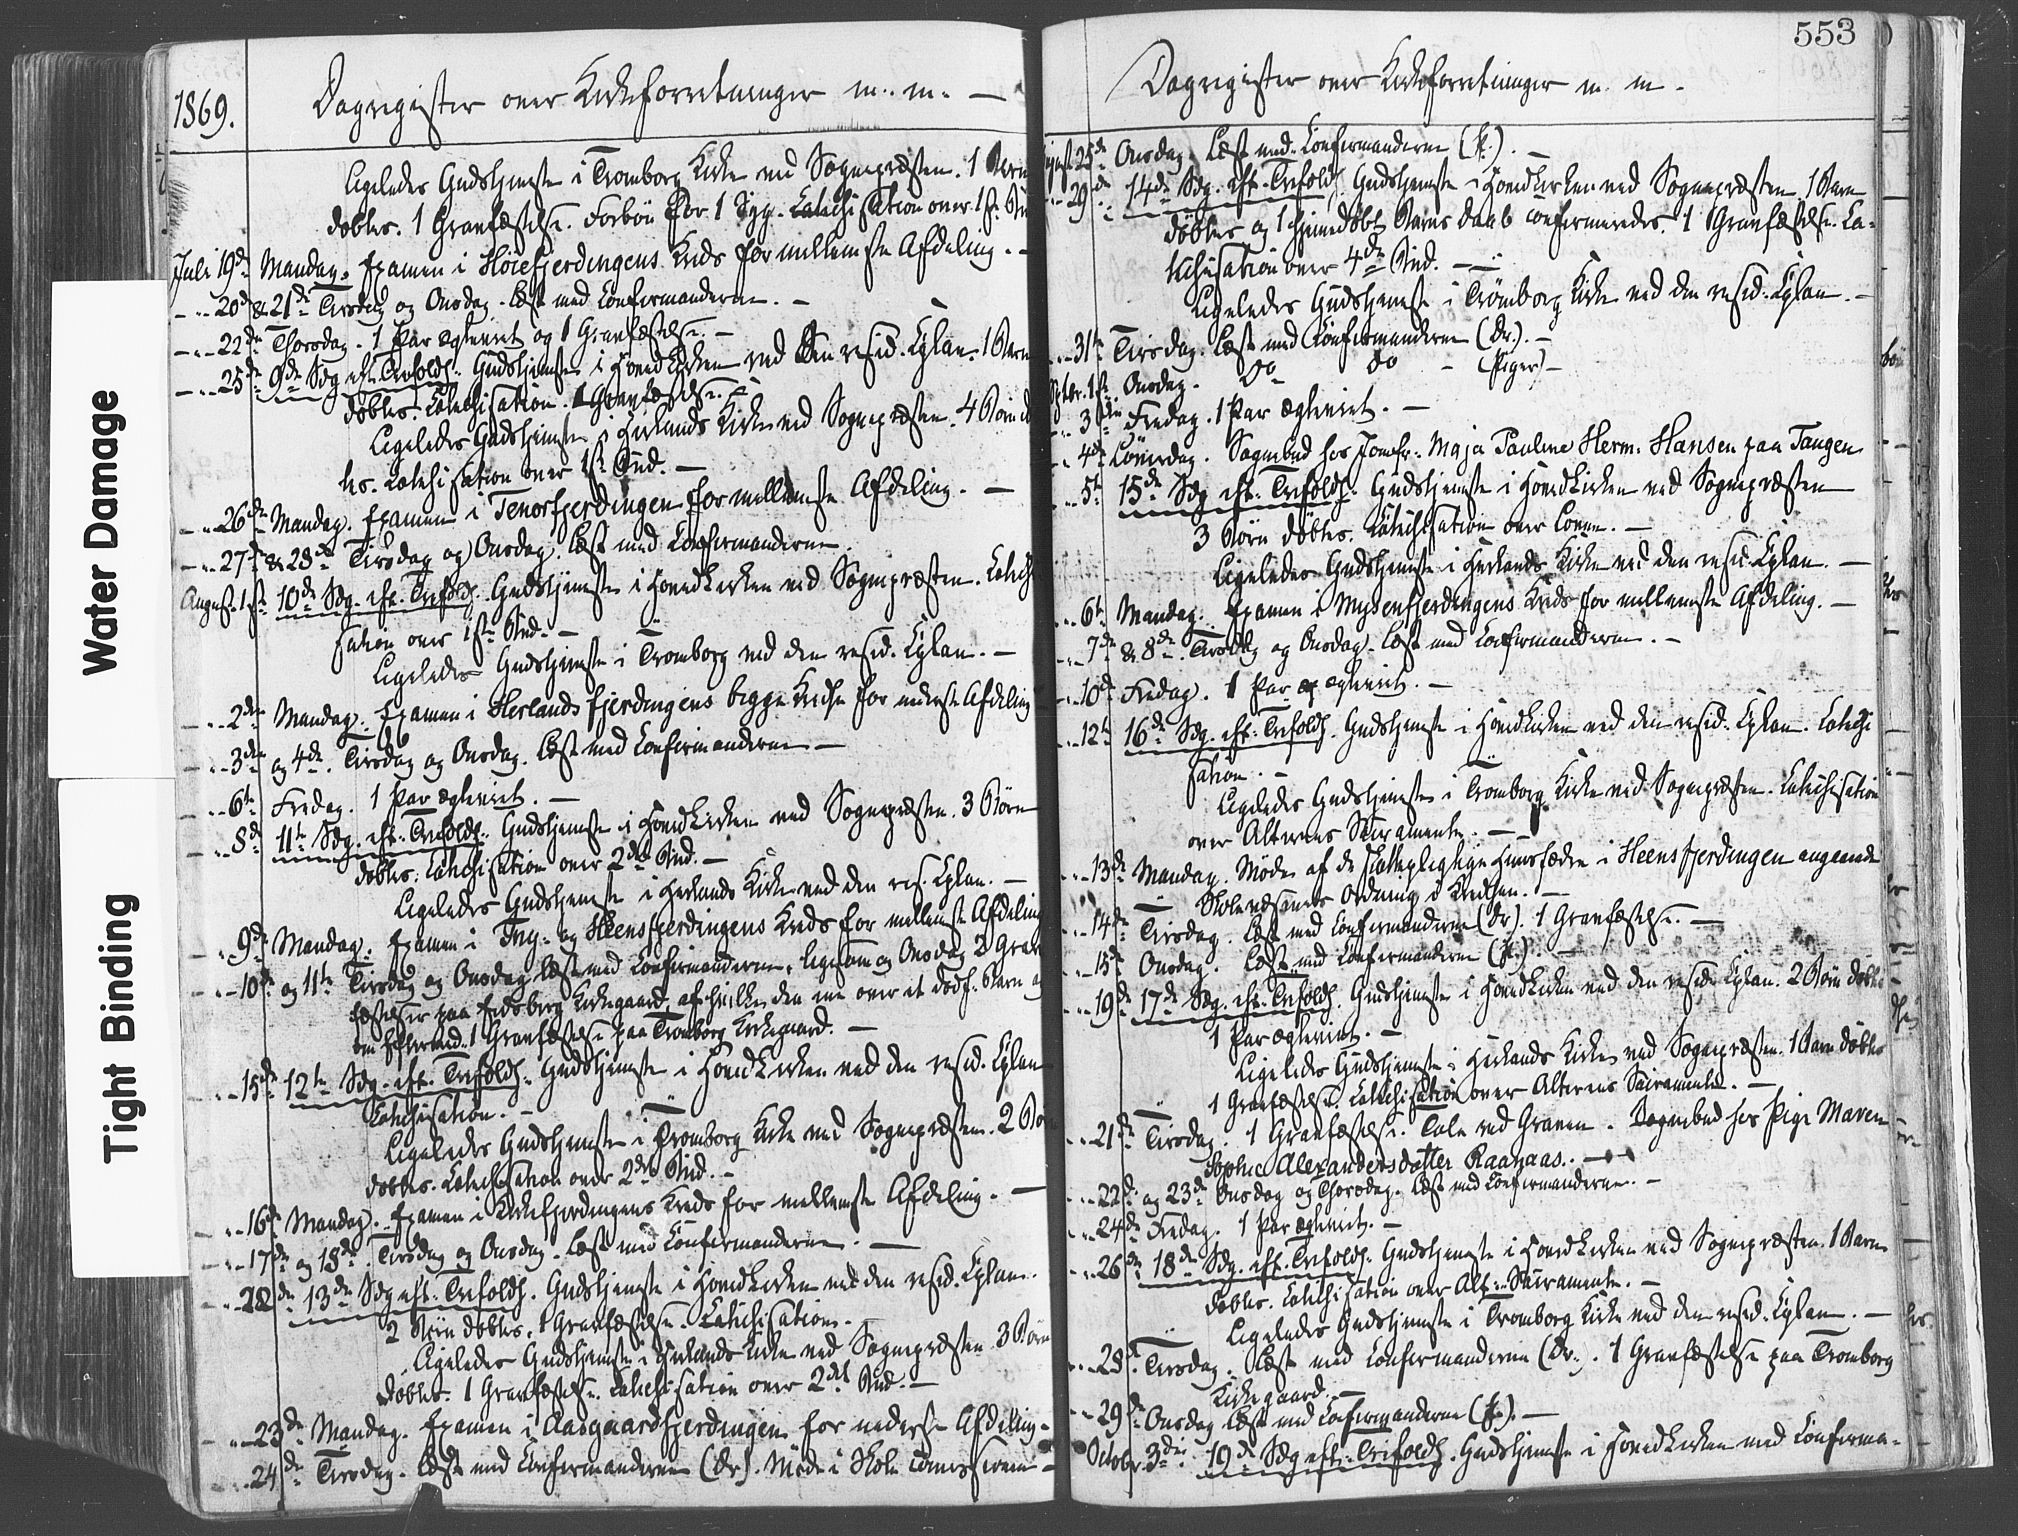 1869. Dagregister over Kirkeforretninger m. m. —
Ligeledes Gudstjeneste i Tromborg Kirke ved Sognepræsten. 1 Barn
døbtes. 1 Gravfæstelse. Forbøn for 1 Syg. Catechisation over 1ste Bud
Juli 19de Mandag. Examen i Høiefjerdingens Kreds for mellemste Afdeling. -
- " - 20de & 21de Tirsdag og Onsdag. Læst med Confirmanderne. -
- " - 22de Thorsdag. 1 Par ægteviet og 1 Gravfæstelse. -
- " - 25de 9de Sdg eft. Trefoldh. Gudstjeneste i Hovedkirken ved den resid. Cplan. 1 Barn
døbtes. Catechisation. 1 Gravfæstelse. -
Ligeledes Gudstjeneste i Herlands Kirke ved Sognepræsten. 4 Børn døb
tes. Catechisation over 1ste Bud. -
- " - 26de Mandag. Examen i Tenorfjerdingen for mellemste Afdeling. -
- " - 27de & 28de Tirsdag og Onsdag. Læst med Confirmanderne.
August 1ste 10de Sdg. eft. Trefoldh. Gudstjeneste i Hovedkirken ved Sognepræsten. Catechi
sation over 1ste Bud. -
Ligeledes Gudstjeneste i Tromborg ved den resid. Cplan. -
- " - 2den Mandag. Examen i Herlandsfjerdingens begge Kredse for nederste Afdeling
- " - 3die og 4de Tirsdag og Onsdag. Læst med Confirmanderne -
- " - 6te Fredag. 1 Par ægteviet. -
- " - 8de 11te Sdg. eft. Trefoldh. Gudstjeneste i Hovedkirken ved Sognepræsten. 3 Børn
døbtes. Catechisation over 2det Bud. -
Ligeledes Gudstjeneste i Herlands Kirke ved den res. Cplan. -
- " - 9de Mandag. Examen i Trøg- og Heensfjerdingens Kreds for mellemste Afdeling
- " - 10de og 11te Tirsdag og Onsdag læst med Confirmanderne, ligesom og Onsdag 3 Grav
fæstelser paa Eidsberg Kirkegaard, af hvilke den ene over et dødf. Barn og
om Eftermid. 1 Gravfæstelse paa Tromborg Kirkegaard. -
- " - 15de 12te Sdg. eft. Trefoldh. Gudstjeneste i Hovedkirken ved den resid. Cplan
Catechisation. -
Ligeledes Gudstjeneste i Tromborg Kirke ved Sognepræsten. 2 Børn
døbtes. Catechisation over 2det Bud. -
- " - 16de Mandag. Examen i Kirkefjerdingens Kreds for mellemste Afdeling. -
- " - 17de og 18de Tirsdag og Onsdag. Læst med Confirmanderne. -
- " - 22de 13de Sdg eft. Trefoldh. Gudstjeneste i Hovedkirken ved den resid. Cplan.
2 Børn døbtes. 1 Gravfæstelse. Catechisation. -
Ligeledes Gudstjeneste i Herlands Kirke ved Sognepræsten. 3 Børn
døbtes. 1 Gravfæstelse. Catechisation over 2det Bud. -
- " - 23de Mandag. Examen i Aasgaardfjerdingen for nederste Afdeling.
- " - 24de Tirsdag. Læst med Confirmanderne (Dr.). Møde i Skole
553
Dagregister over Kirkeforretninger m. m. -
August 25de Onsdag. Læst med Confirmanderne (P.). -
- " - 29de 14de Sdg. eft. Trefoldh. Gudstjeneste i Hovedkirken ved Sognepræsten 1 Barn
døbtes og 1 hjemmedøbt Barns Daab confirmeredes. 1 Gravfæstelse. Ca-
techisation over 4de Bud. -
Ligeledes Gudstjeneste i Trømborg Kirke ved den resid. Cplan. -
- " - 31te Tirsdag. Læst med Confirmanderne (Dr.). -
Septbr. 1ste Onsdag. Do Do - (Piger) -
- " - 3die Fredag. 1 Par ægteviet. -
- " - 4de Løverdag. Sognebud hos Jomfr. Maja Pauline Herm. Hansen paa Tangen
- " - 5te 15de Sdg. eft. Trefoldh. Gudstjeneste i Hovedkirken ved Sognepræsten
3 Børn døbtes. Catechisation over Loven. -
Ligeledes Gudstjeneste i Herlands Kirke ved den resid. Cplan. -
- " - 6te Mandag. Examen i Mysenfjerdingens Kreds for mellemste Afdeling. -
- " - 7de & 8de Tirsdag og Onsdag. Læst med Confirmanderne. -
- " - 10de Fredag. 1 Par ægteviet. -
- " - 12te 16de Sdg. eft. Trefoldh. Gudstjeneste i Hovedkirken ved den resid. Cplan. Catechi
sation. -
Ligeledes Gudstjeneste i Tromborg Kirke ved Sognepræsten. Catechisation
over Alterens Sacramente. -
- " - 13de Mandag. Møde af de skattepligtige Huusfædre i Heensfjerdingen angaaende
Skolevæsenets Ordning i Kredsen. -
- " - 14de Tirsdag. Læst med Confirmanderne (Dr). 1 Gravfæstelse. -
- " - 15de Onsdag. Læst med Confirmanderne (P.). -
- " - 19de 17de Sdg. eft. Trefoldh. Gudstjeneste i Hovedkirken ved den resid. Cplan. 2 Børn døbtes
1 Par ægteviet. -
Ligeledes Gudstjeneste i Herlands Kirke ved Sognepræsten. 1 Barn døbtes
1 Gravfæstelse. Catechisation over Alterens Sacramente. -
- " - 21de Tirsdag. 1 Gravfæstelse. Tale ved Graven. Sognebud hos Pige Maren
Sophie Alexandersdatter Raanaas. -
- " - 22de og 23de Onsdag og Thorsdag. Læst med Confirmanderne. -
- " - 24de Fredag. 1 Par ægteviet. -
- " - 26de 18de Sdg. eft. Trefoldh. Gudstjeneste i Hovedkirken ved Sognepræsten. 1 Barn
døbtes. Catechisation over Alt. Sacramente. -
Ligeledes Gudstjeneste i Tromborg Kirke ved den resid. Cplan. -
- " - 28de Tirsdag. Læst med Confirmanderne (Dr.). 1 Gravfæstelse paa Tromborg
Kirkegaard. -
- " - 29de Onsdag Læst med Confirmanderne (P.). -
Octobr. 3die 19de Sdg eft. Trefoldh. Gudstjeneste i Hovedkirken med Confirma-
Water Damage
Tight Binding